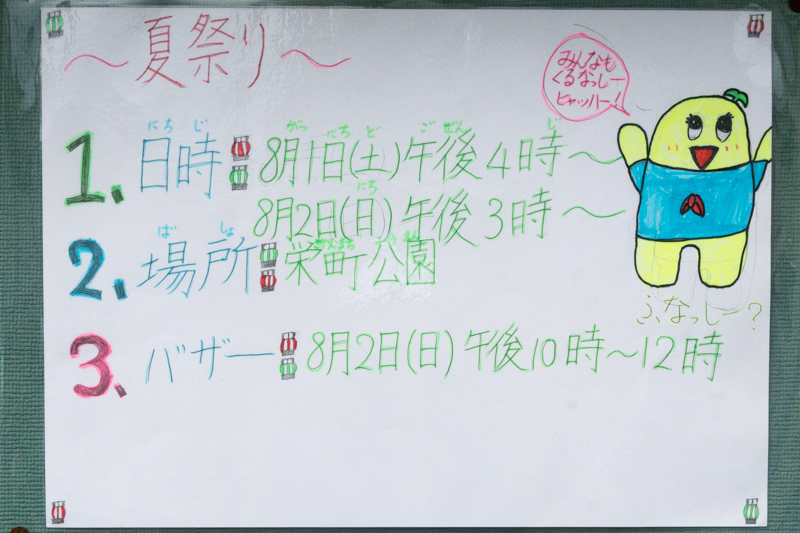 ～夏祭り～
みんなも
くるなっしー
ヒャッハー！
1. 日時 8月1日(土)午後4時～
8月2日(日)午後3時～
2. 場所 栄町公園
3. バザー 8月2日(日)午後10時～12時
ふなっしー？